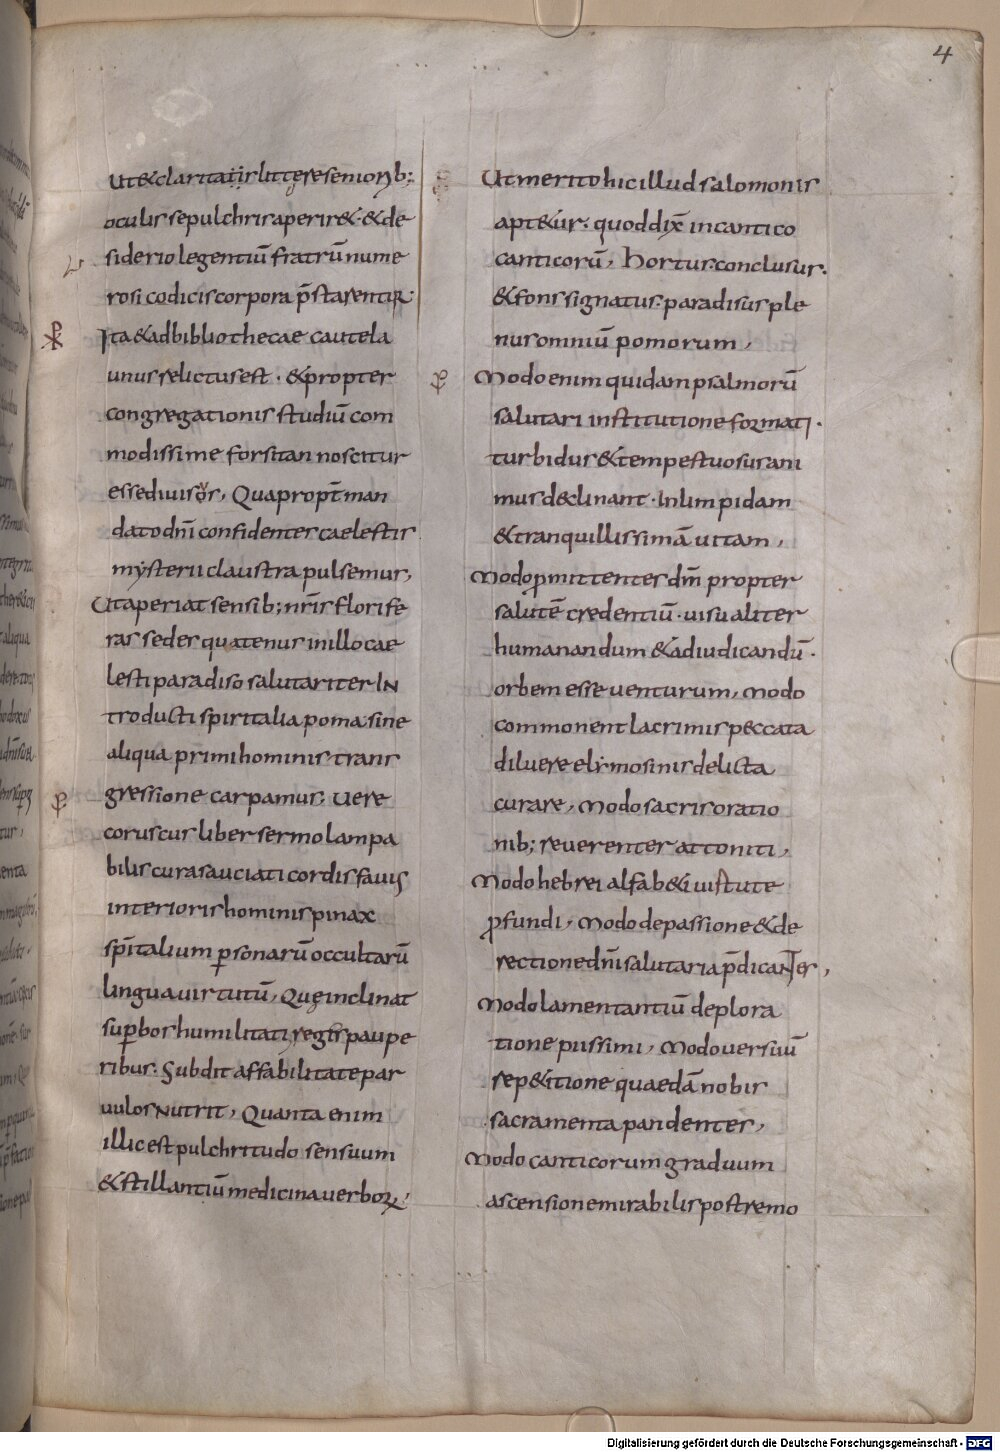 4
ut & claritatis littere seniorib;
oculis se pulchris aperir&. & de
siderio legentiū fratrū nume
rosi codicis corpora p̄starentur.
Ita & ad bibliothecae cautela
unus relictus est. & propter
congregationis studiū com
modissime forsitan noscitur
esse divisus, Quapropt̄ man
dato dn̄i confidenter caelestis
mysterii claustra pulsemus,
Ut aperiat sensib; nr̄is florife
ras sedes quatenus in illo cae
lesti paradiso salutariter IN
troducti spiritalia poma sine
aliqua primi hominis trans
gressione carpamus, Uere
coruscus liber sermo lampa
bilis cura sauciati cordis favus
interioris hominis pinax
spīritalium ꝑsonarū occultarū
lingua uirtutū, Que inclinat
suꝑbos humilitati reges paupe
ribus. Subdit affabilitate par
uulos NUTRIT, Quanta enim
illic est pulchritudo sensuum
& stillantiū medicina uerborū,
Ut merito hic illud salomonis
apt&ur. quod dix̄ in cantico
canticorū, Hortus conclusus.
& fons signatus. paradisus ple
nus omniū pomorum,
Modo enim quidam psalmorū
salutari institutione formati.
turbidus & tempestuosus ani
mus declinant. In limpidam
& tranquillissimā uitam,
Modo ꝓmittentes dm̄ propter
salutē credentiū. uisualiter
humanandum & adiudicandū.
orbem esse uenturum, Modo
commonent lacrimis peccata
diluere elymosinis delicta
curare, Modo sacris oratio
nib; reuerenter attoniti,
Modo hebrei alfab&i uirtute
ꝓfundi, Modo de passione & de
rectione dn̄i salutaria p̄dicaNTes,
Modo lamentantiū deplora
tione piissimi, Modo uersuū
rep&itione quaedā nobis
sacramenta pandentes,
Modo canticorum graduum
ascensione mirabilis postremo
Digitalisierung gefördert durch die Deutsche Forschungsgemeinschaft - DFG